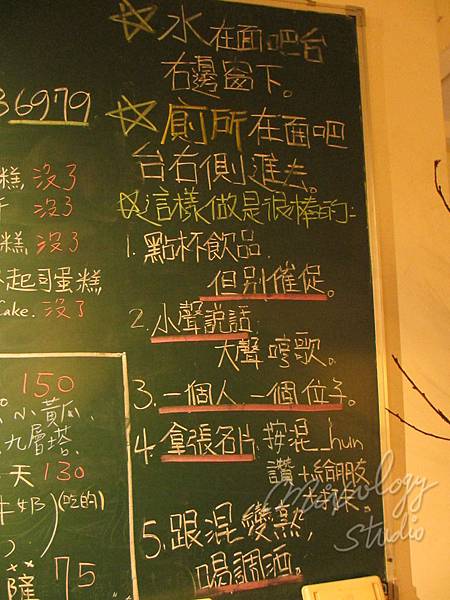 ☆水在面吧台
右邊窗下。
☆廁所在面吧
台右側進去。
☆這樣做是很棒的:
1.點杯飲品.
但别催促。
2.小聲說話
大聲哼歌。
3.一個人一個位子。
4.拿張名片.按混__hun
讚+給朋友
5.跟混變熟,
喝調酒。
36979
糕 沒了
沒了
糕 沒了
起司蛋糕
Cake. 沒了
150
小黃瓜、
九層塔、
天 130
牛奶)(吃的)
薩 75
Mixology
Studio